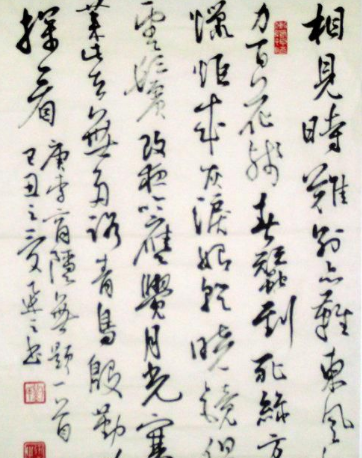 相見時難別亦難東風
力百花殘春蠶到死絲方
燭炬成灰淚始乾曉鏡但
雲鬢改夜吟應覺月光寒
蓬山此去無多路青鳥殷勤
探看
唐李商隱無題一首
己丑之夏